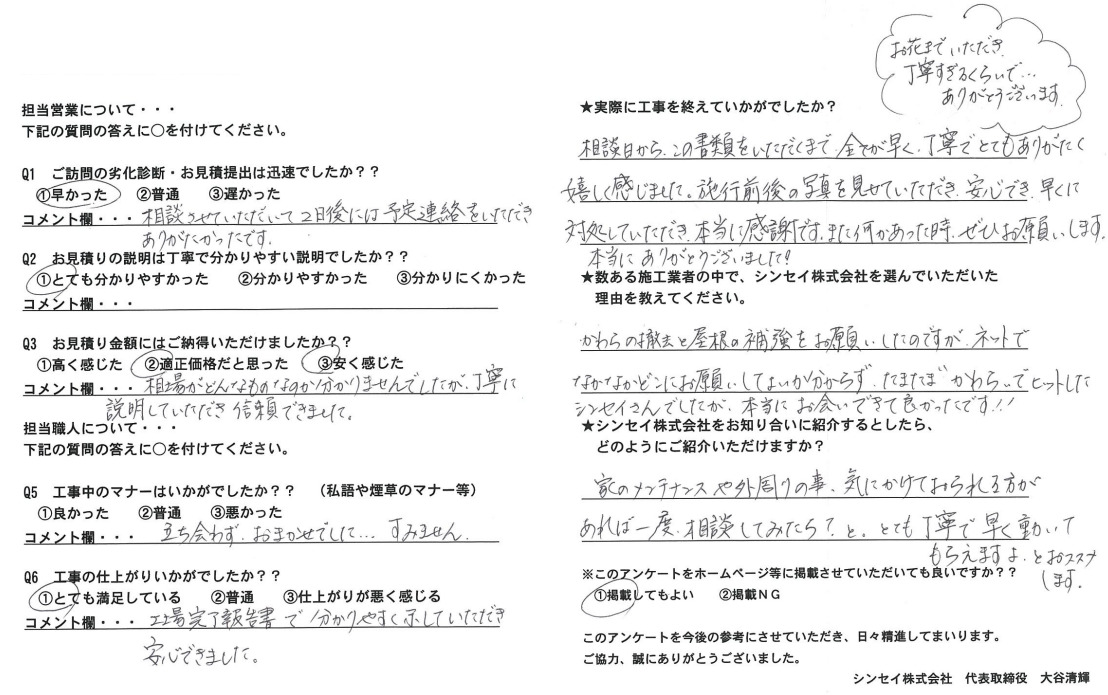 担当営業について・・・
下記の質問の答えに○を付けてください。
Q1 ご訪問の劣化診断・お見積提出は迅速でしたか？？
①早かった ②普通 ③遅かった
コメント欄・・・ 相談させていただいて2日後には予定連絡をいただき
ありがたかったです。
Q2 お見積りの説明は丁寧で分かりやすい説明でしたか？？
①とても分かりやすかった ②分かりやすかった ③分かりにくかった
コメント欄・・・
Q3 お見積り金額にはご納得いただけましたか？？
①高く感じた ②適正価格だと思った ③安く感じた
コメント欄・・・ 相場がどんなものなのか分かりませんでしたが、丁寧に
説明していただき信頼できました。
担当職人について・・・
下記の質問の答えに○を付けてください。
Q5 工事中のマナーはいかがでしたか？？ （私語や煙草のマナー等）
①良かった ②普通 ③悪かった
コメント欄・・・ 立ち会わず、おまかせでした… すみません。
Q6 工事の仕上がりいかがでしたか？？
①とても満足している ②普通 ③仕上がりが悪く感じる
コメント欄・・・ 工場完了報告書で分かりやすく示していただき
安心できました。
お花までいただき
丁寧すぎるくらいで…
ありがとうございます。
★実際に工事を終えていかがでしたか？
相談日から、この書類をいただくまで、全てが早く、丁寧でとてもありがたく
嬉しく感じました。施行前後の写真を見せていただき、安心でき、早くに
対処していただき、本当に感謝です。また何かあった時、ぜひお願いします。
本当にありがとうございました！
★数ある施工業者の中で、シンセイ株式会社を選んでいただいた
理由を教えてください。
かわらの撤去と屋根の補強をお願いしたのですが、ネットで
なかなかどこにお願いしてよいか分からず、たまたま“かわら”でヒットした
シンセイさんでしたが、本当にお会いできて良かったです！！
★シンセイ株式会社をお知り合いに紹介するとしたら、
どのようにご紹介いただけますか？
家のメンテナンスや外周りの事、気にかけておられる方が
あれば一度、相談してみたら？と。とても丁寧で早く動いて
もらえますよ、とおススメ
します。
※このアンケートをホームページ等に掲載させていただいても良いですか？？
①掲載してもよい ②掲載ＮＧ
このアンケートを今後の参考にさせていただき、日々精進してまいります。
ご協力、誠にありがとうございました。
シンセイ株式会社 代表取締役 大谷清輝